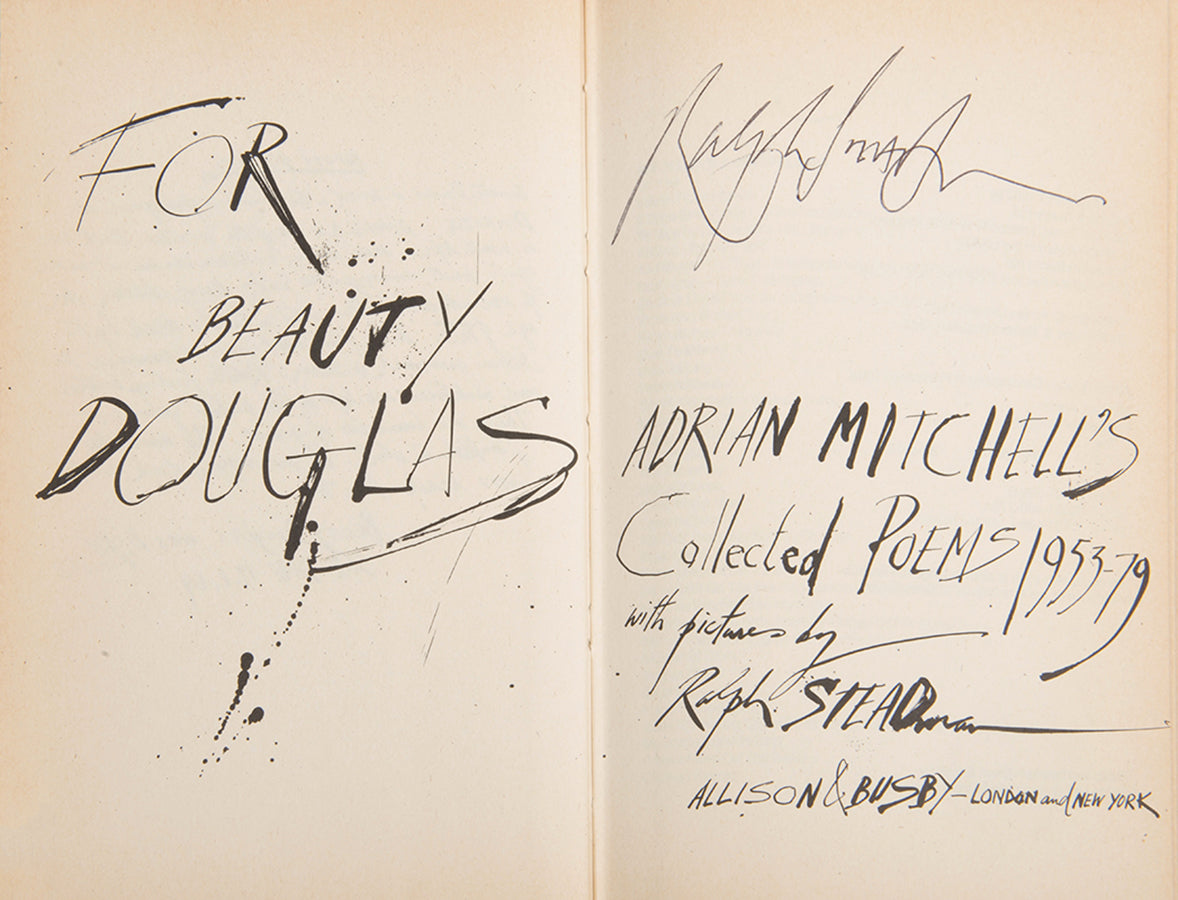 FOR
BEAUTY
DOUGLAS
Ralph Steadman
ADRIAN MITCHELL'S
Collected POEMS 1953-79
with pictures by
Ralph STEADman
ALLISON & BUSBY - LONDON and NEW YORK